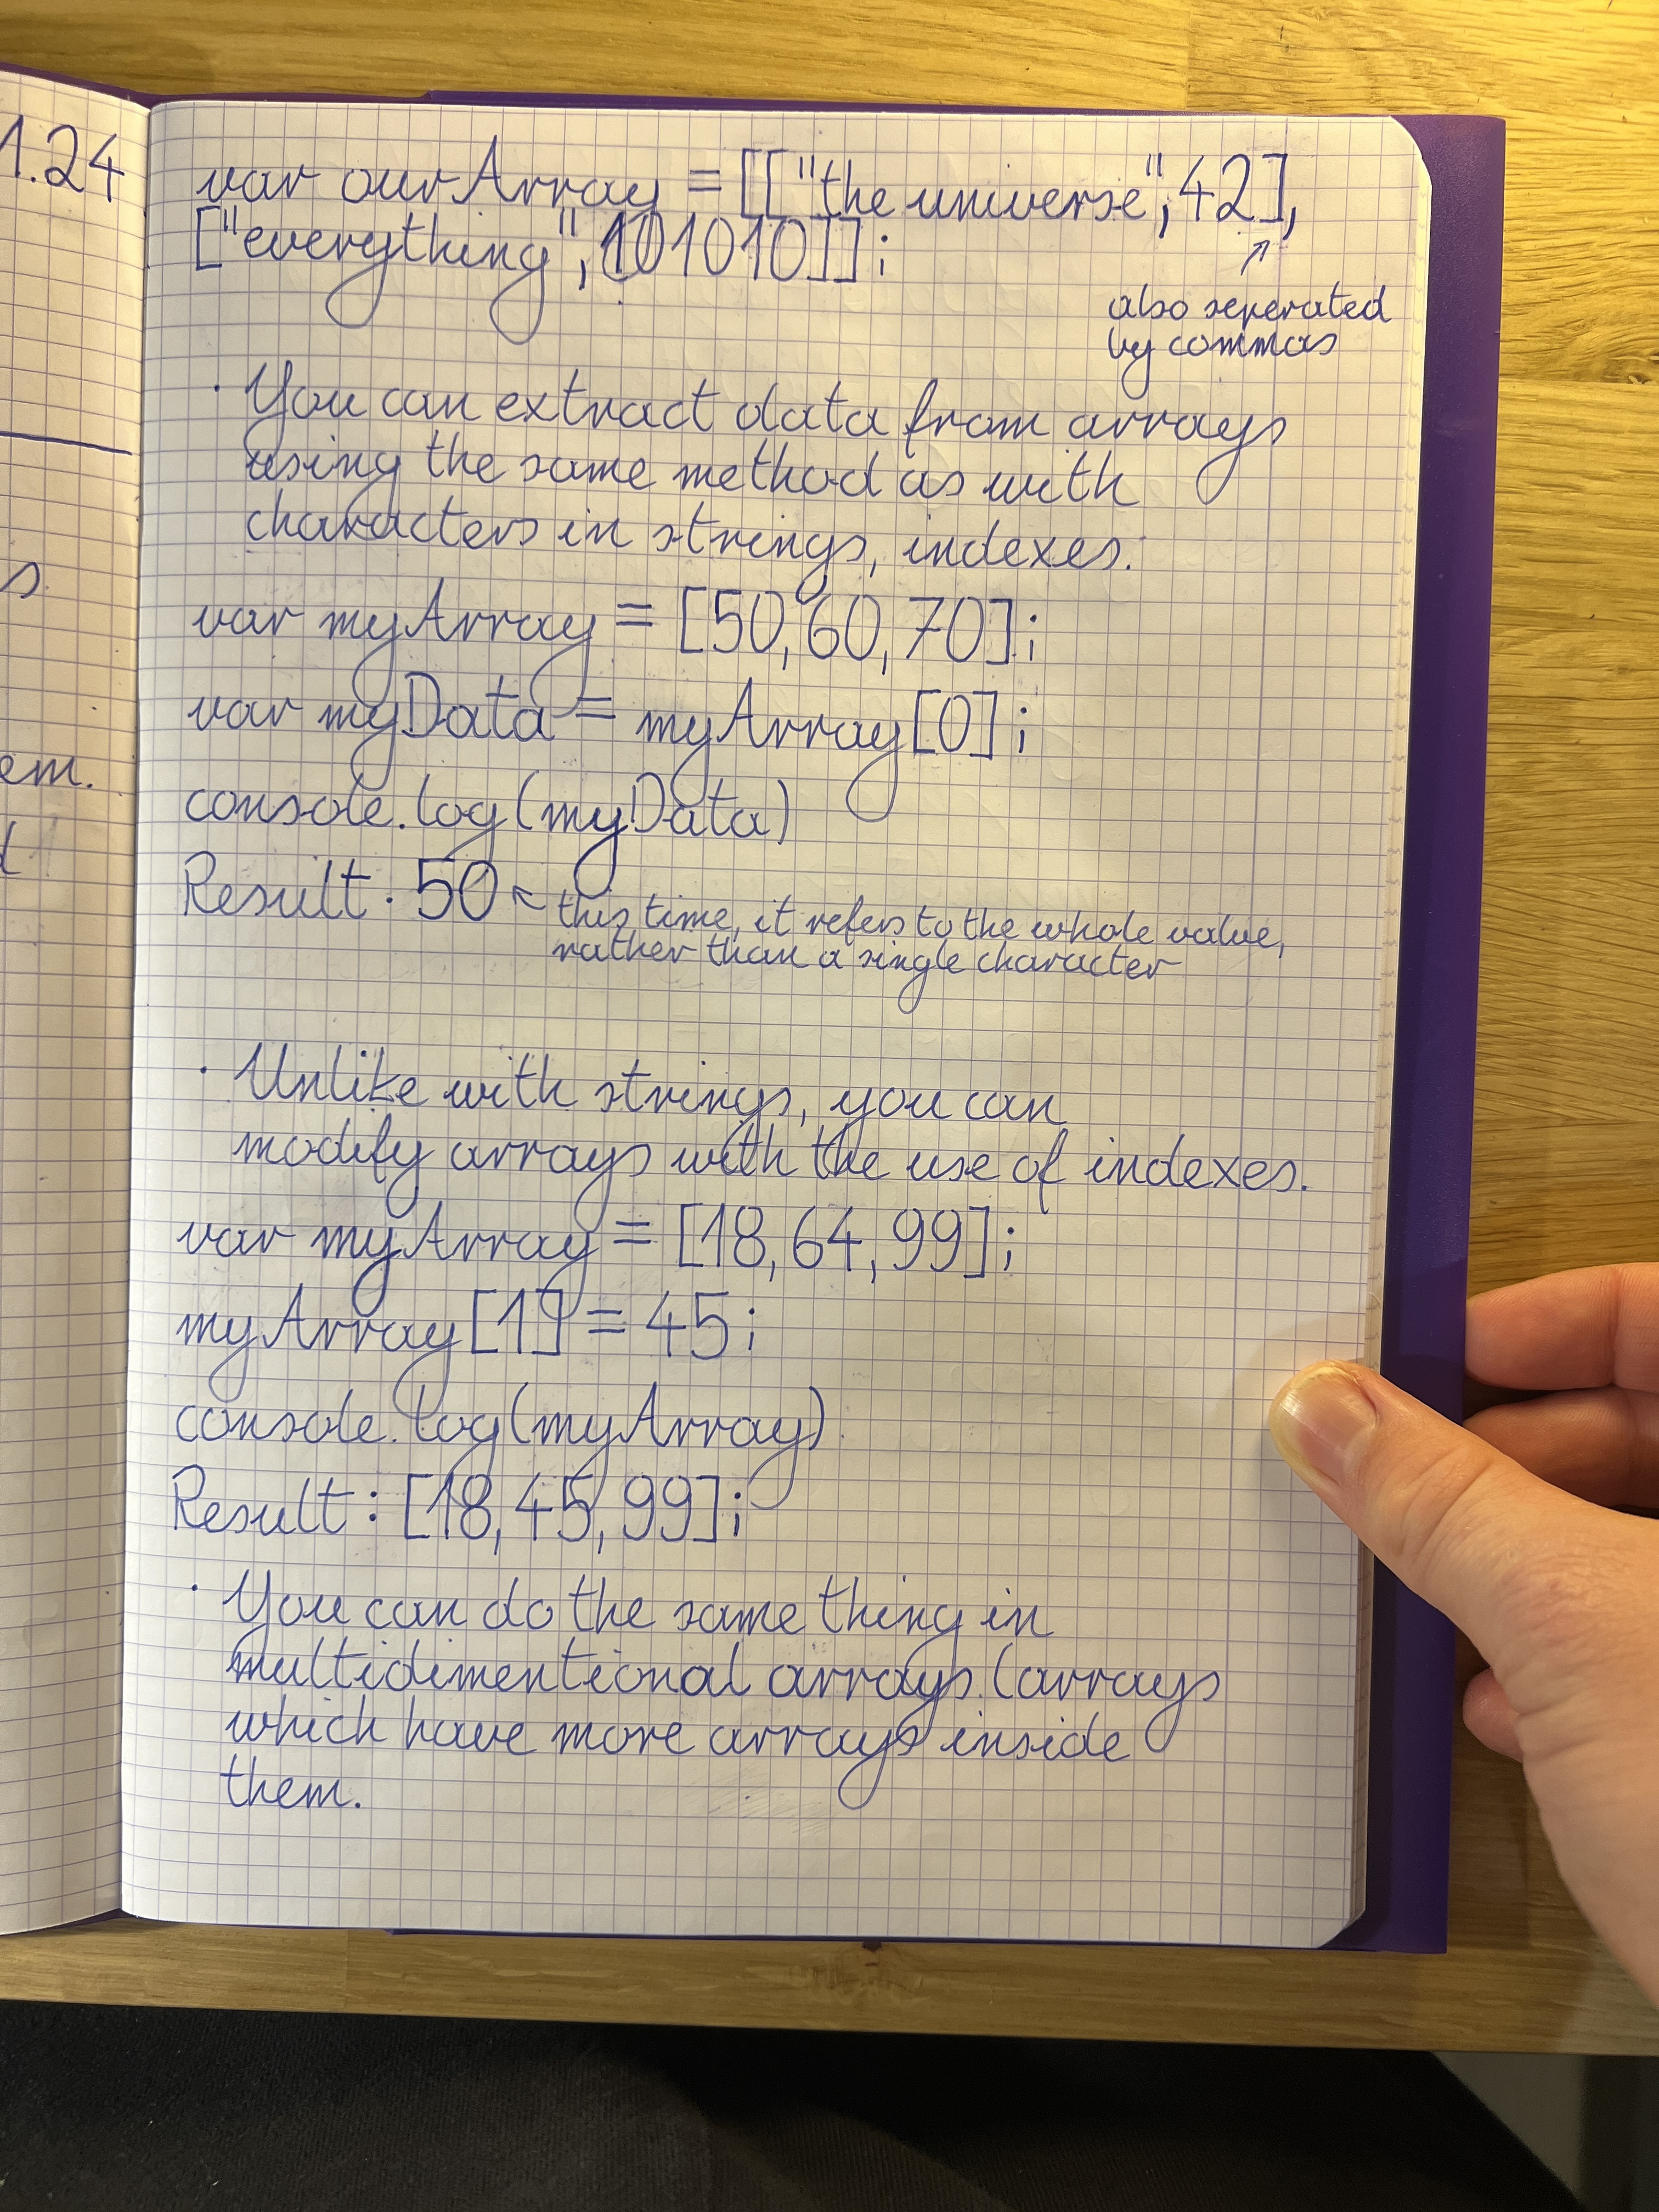 1.24
s
em.
var ourArray = [["the universe", 42],
["everything", 101010]];
also seperated
by commas
· You can extract data from arrays
using the same method as with
characters in strings, indexes.
var myArray = [50,60,70];
var myData = myArray[0];
console.log(myData)
Result: 50
this time, it refers to the whole value,
rather than a single character
· Unlike with strings, you can
modify arrays with the use of indexes.
var myArray = [18,64,99];
myArray[1] = 45;
console.log(myArray)
Result: [18,45,99];
· You can do the same thing in
multidimentional arrays. (arrays
which have more arrays inside
them.